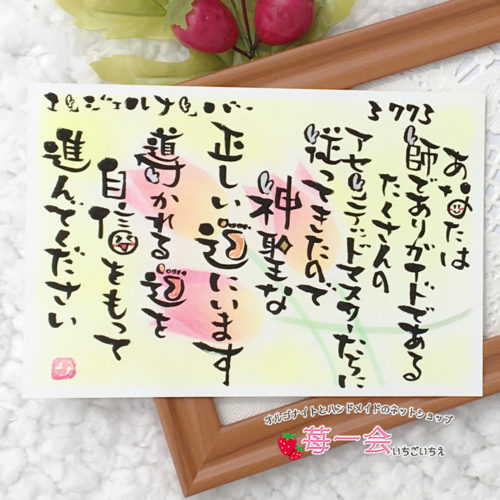 エンジェルナンバー 3773
あなたは
師でありガイドである
たくさんの
アセンデッドマスターたちに
従ってきたので
神聖な
正しい道にいます
導かれる道を
自信をもって
進んでください
オルゴナイトとハンドメイドのネットショップ
苺一会 いちごいちえ